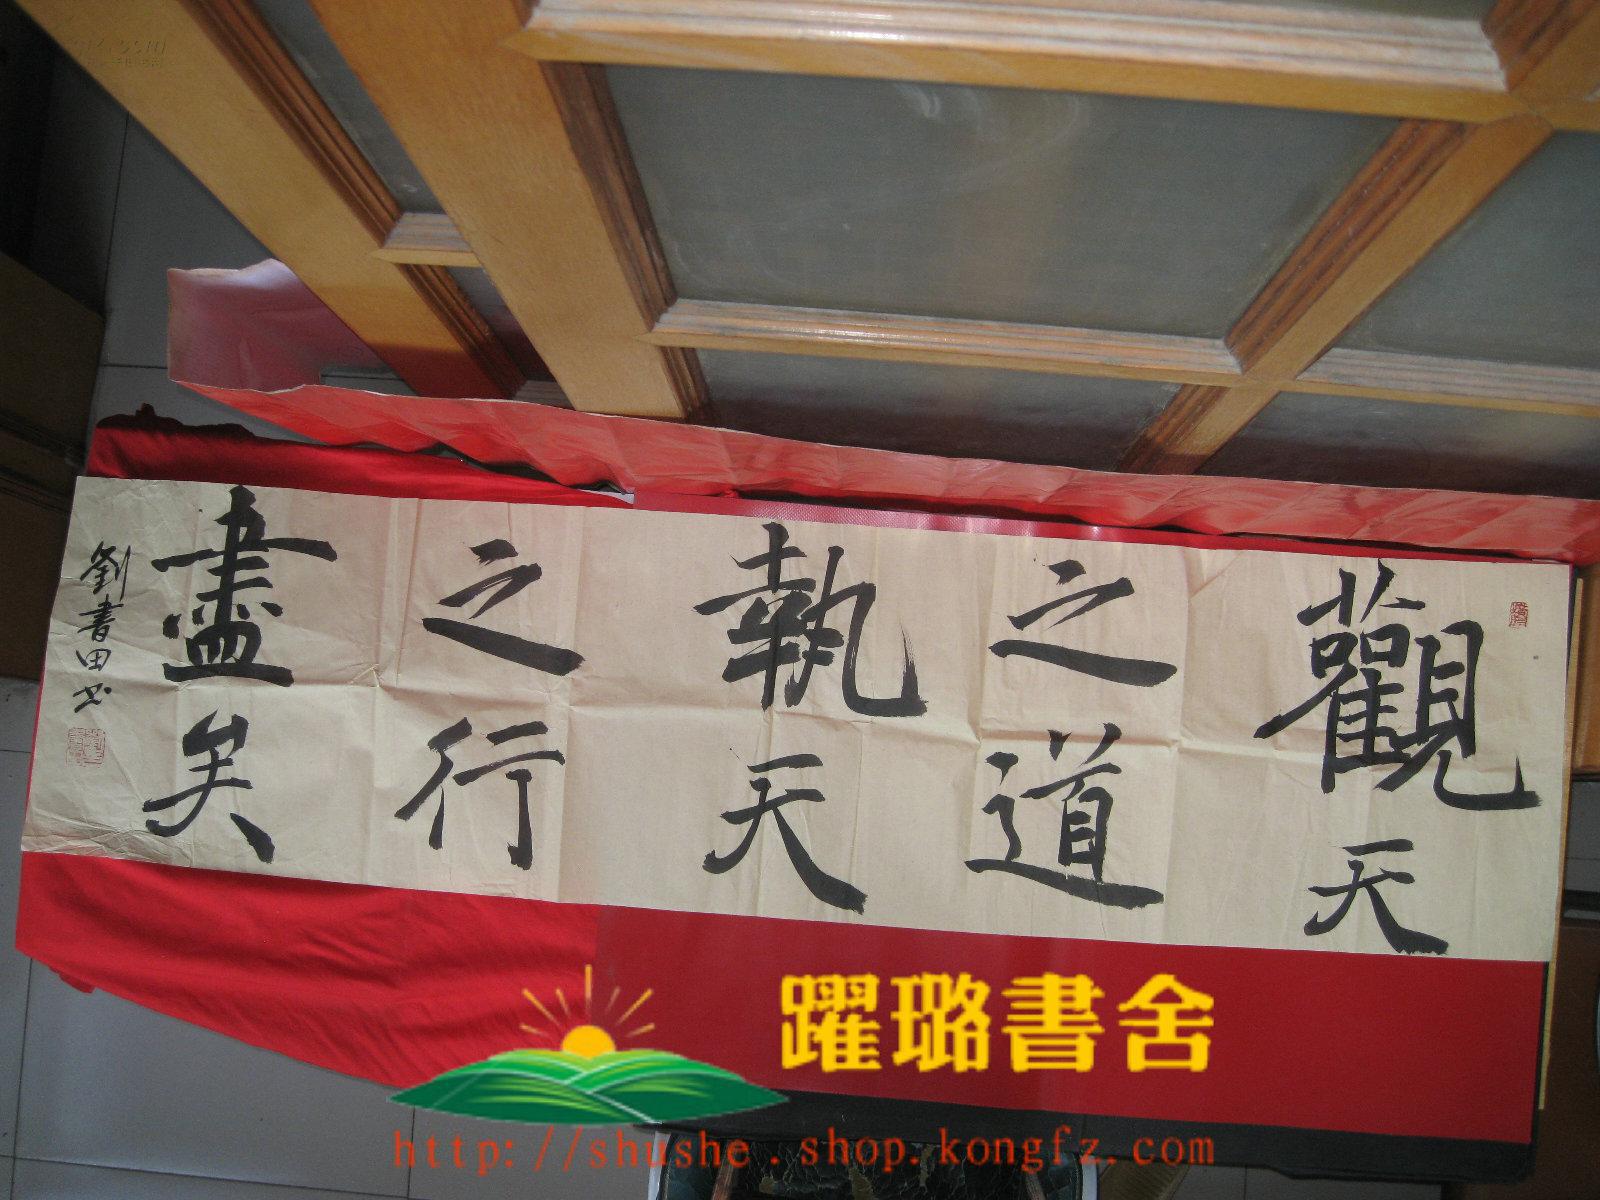 觀天
之道
執天
之行
盡矣
劉書田书
躍璐書舍
http://shushe.shop.kongfz.com